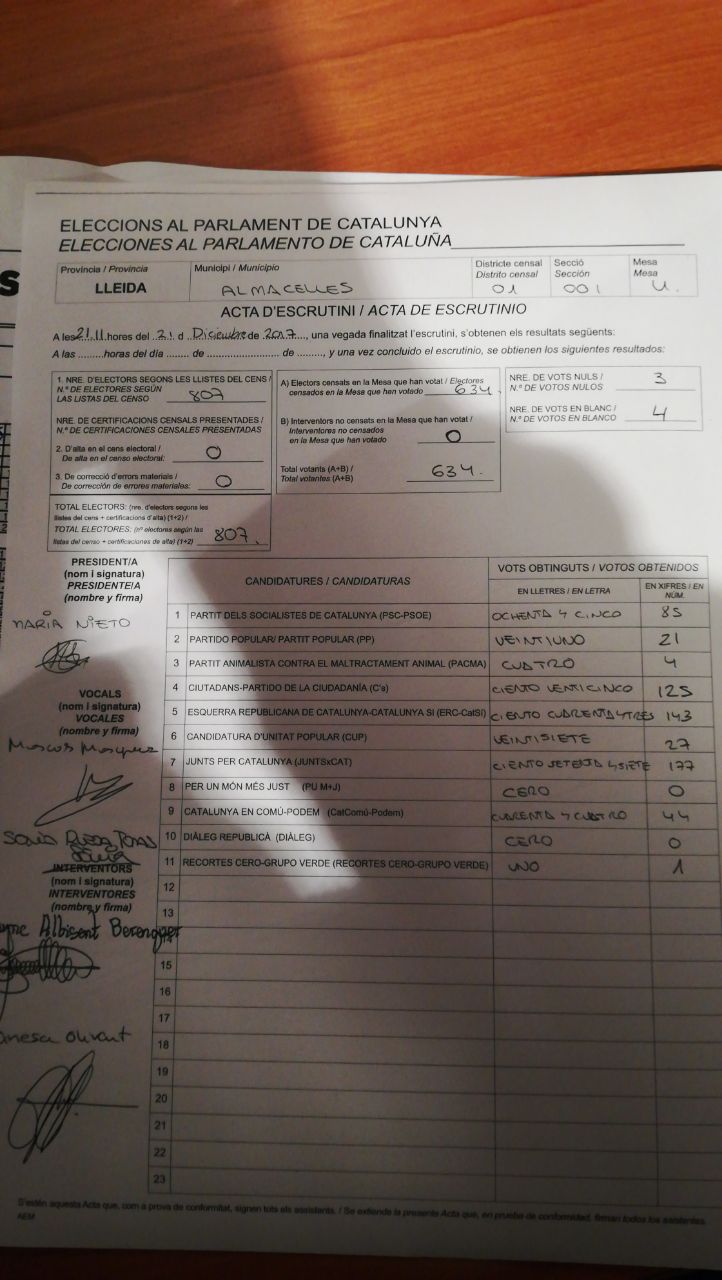 ELECCIONS AL PARLAMENT DE CATALUNYA
ELECCIONES AL PARLAMENTO DE CATALUÑA
Província / Provincia
LLEIDA
Municipi / Municipio
ALMACELLES
Districte censal
Distrito censal
01
Secció
Sección
001
Mesa
Mesa
U.
ACTA D'ESCRUTINI / ACTA DE ESCRUTINIO
A les 21.11 hores del 21 d Diciembre de 2017, una vegada finalitzat l'escrutini, s'obtenen els resultats següents:
A las ........horas del día ....... de .......................... de ........, y una vez concluido el escrutinio, se obtienen los siguientes resultados:
1. NRE. D'ELECTORS SEGONS LES LLISTES DEL CENS /
N.º DE ELECTORES SEGÚN
LAS LISTAS DEL CENSO 807
NRE. DE CERTIFICACIONS CENSALS PRESENTADES /
N.º DE CERTIFICACIONES CENSALES PRESENTADAS
2. D'alta en el cens electoral /
De alta en el censo electoral: 0
3. De correcció d'errors materials /
De corrección de errores materiales: 0
TOTAL ELECTORS: (nre. d'electors segons les
llistes del cens + certificacions d'alta) (1+2) /
TOTAL ELECTORES: (nº electores según las
listas del censo + certificaciones de alta) (1+2) 807.
A) Electors censats en la Mesa que han votat / Electores
censados en la Mesa que han votado 634.
B) Interventors no censats en la Mesa que han votat /
Interventores no censados
en la Mesa que han votado 0
Total votants (A+B) /
Total votantes (A+B) 634.
NRE. DE VOTS NULS /
N.º DE VOTOS NULOS 3
NRE. DE VOTS EN BLANC /
N.º DE VOTOS EN BLANCO 4
PRESIDENT/A
(nom i signatura)
PRESIDENTE/A
(nombre y firma)
MARIA NIETO
VOCALS
(nom i signatura)
VOCALES
(nombre y firma)
INTERVENTORS
(nom i signatura)
INTERVENTORES
(nombre y firma)
Albisent Berenguer
CANDIDATURES / CANDIDATURAS
VOTS OBTINGUTS / VOTOS OBTENIDOS
EN LLETRES / EN LETRA
EN XIFRES / EN NÚM.
1 PARTIT DELS SOCIALISTES DE CATALUNYA (PSC-PSOE) OCHENTA Y CINCO 85
2 PARTIDO POPULAR/ PARTIT POPULAR (PP) VEINTIUNO 21
3 PARTIT ANIMALISTA CONTRA EL MALTRACTAMENT ANIMAL (PACMA) CUATRO 4
4 CIUTADANS-PARTIDO DE LA CIUDADANÍA (C's) CIENTO VENTICINCO 125
5 ESQUERRA REPUBLICANA DE CATALUNYA-CATALUNYA SI (ERC-CatSI) CIENTO CUARENTAYTRES 143
6 CANDIDATURA D'UNITAT POPULAR (CUP) VEINTISIETE 27
7 JUNTS PER CATALUNYA (JUNTSxCAT) CIENTO SETENTA YSIETE 177
8 PER UN MÓN MÉS JUST (PU M+J) CERO 0
9 CATALUNYA EN COMÚ-PODEM (CatComú-Podem) CUARENTA Y CUATRO 44
10 DIÀLEG REPUBLICÀ (DIÀLEG) CERO 0
11 RECORTES CERO-GRUPO VERDE (RECORTES CERO-GRUPO VERDE) UNO 1
12
13
14
15
16
17
18
19
20
21
22
23
S'estén aquesta Acta que, com a prova de conformitat, signen tots els assistents. / Se extiende la presente Acta que, en prueba de conformidad, firman todos los asistentes.
AEM